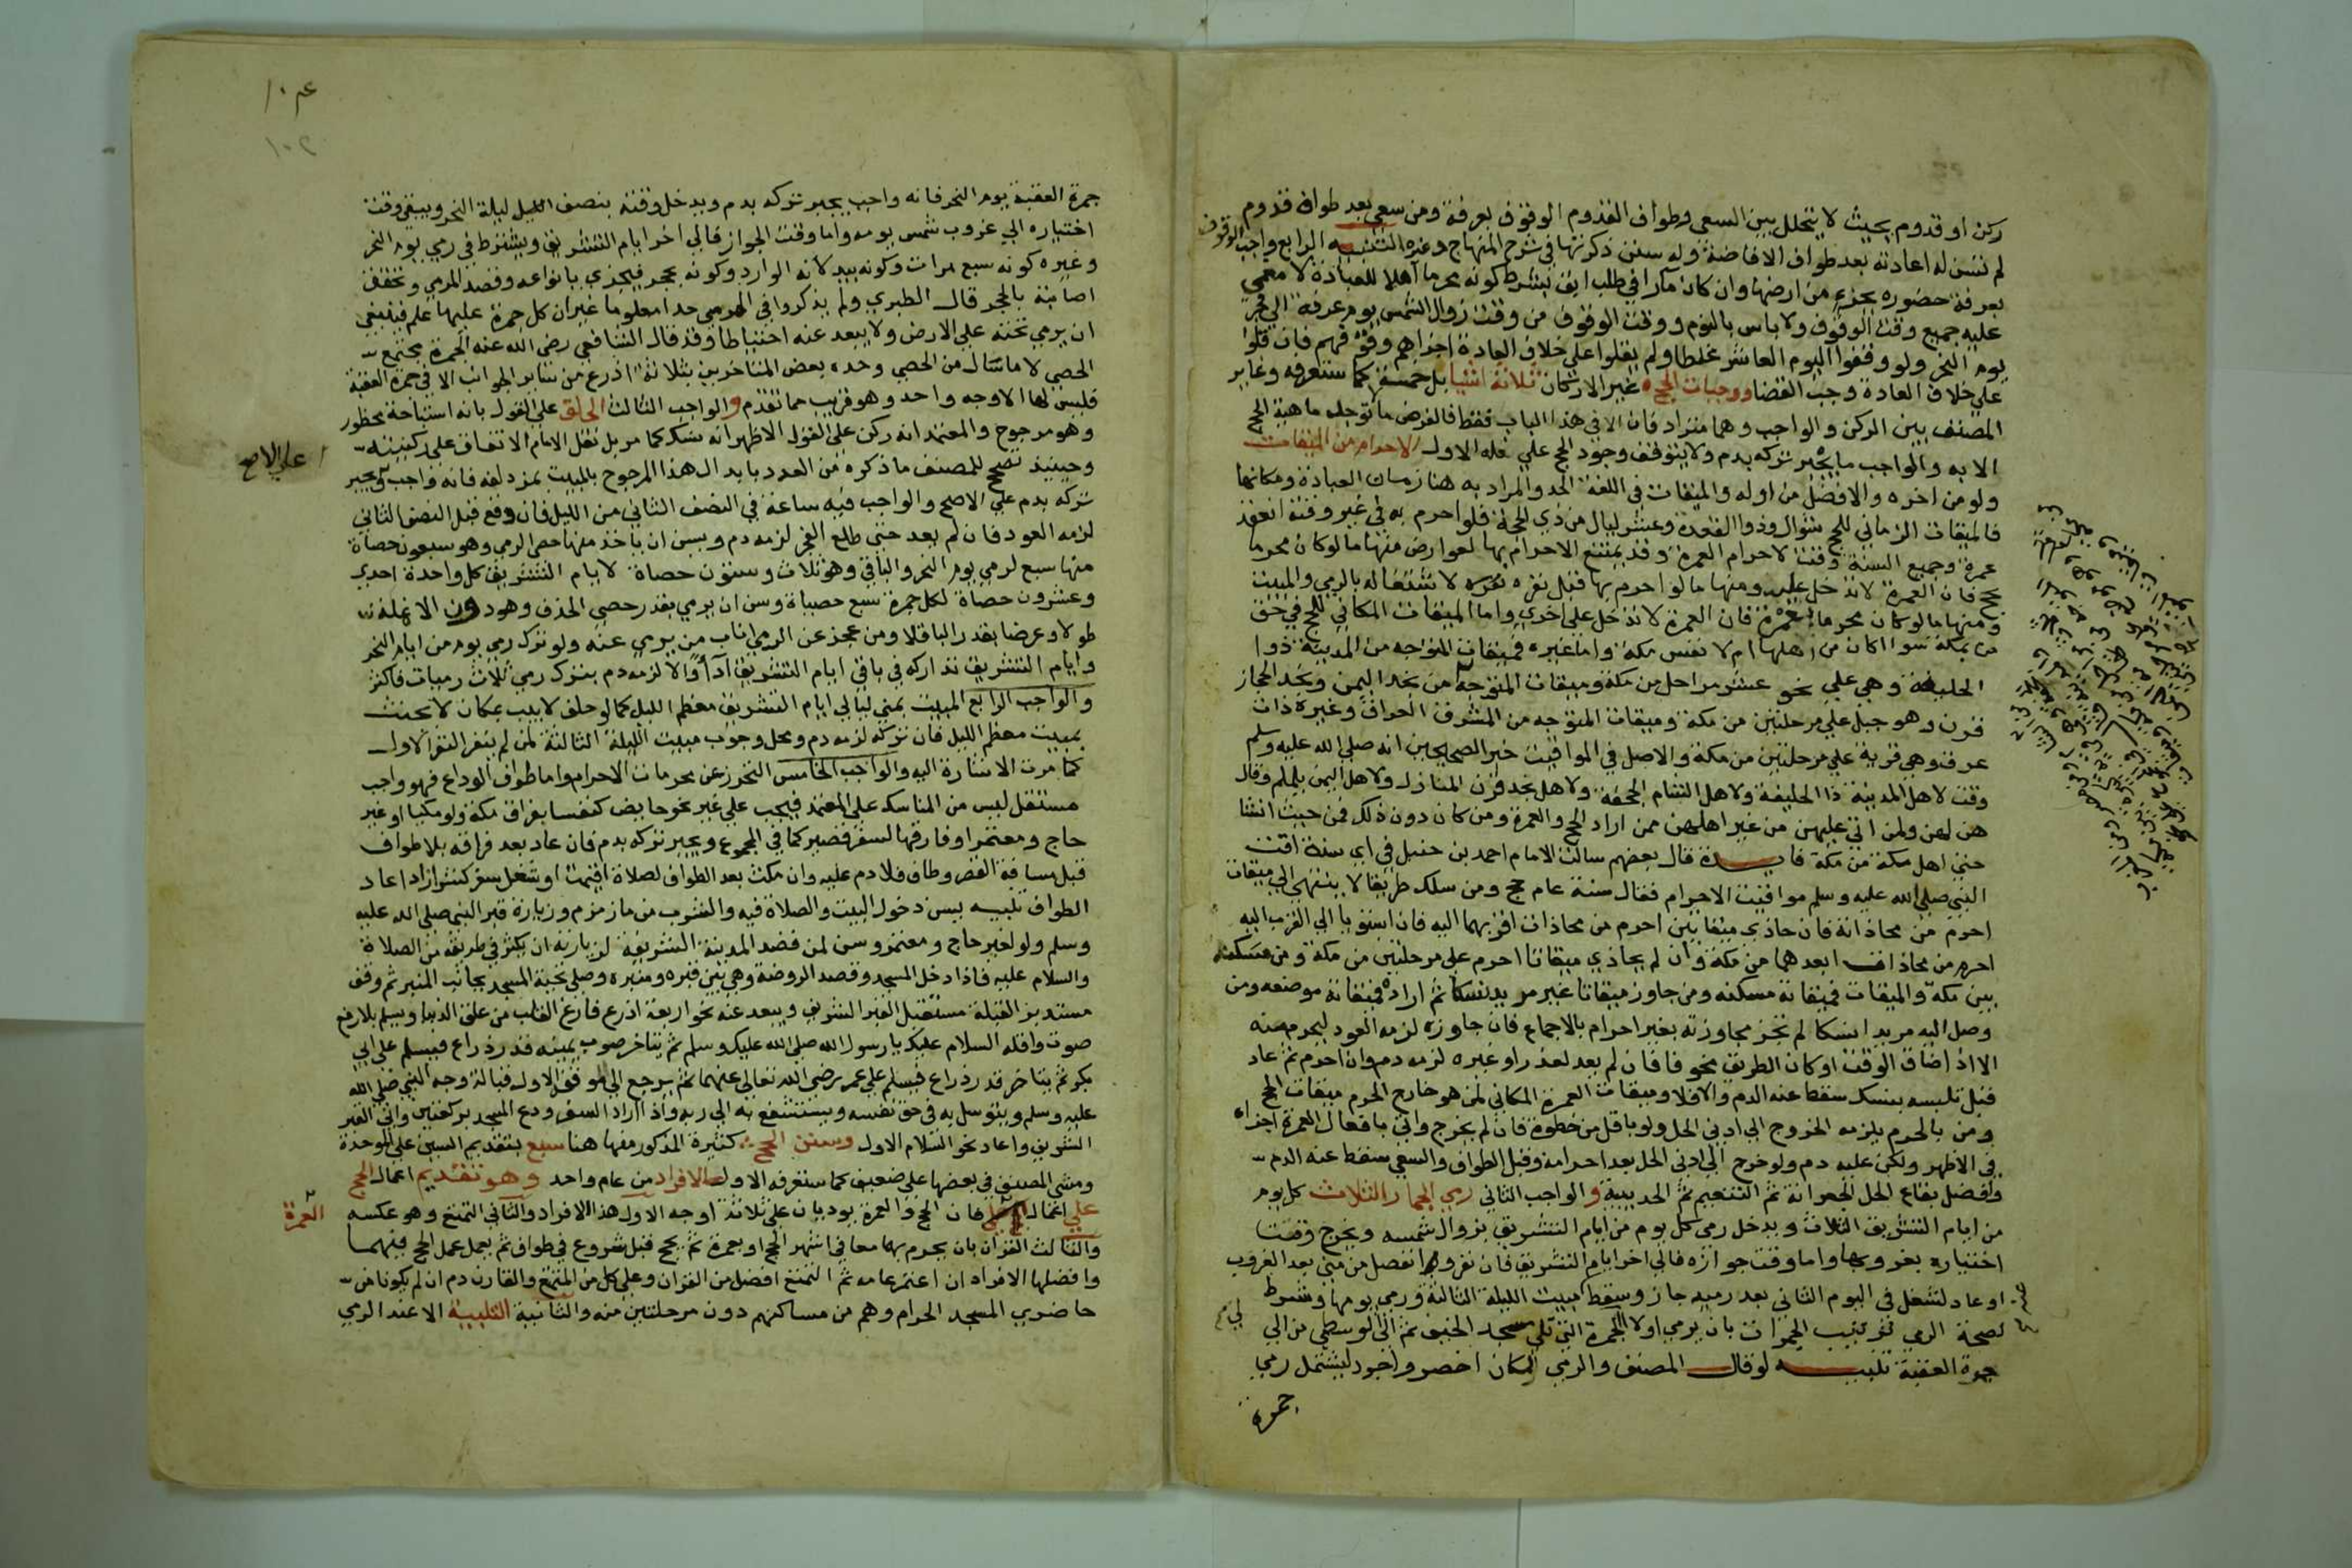 ركن او قدوم بحيث لا يتخلل بين السعي وطواف القدوم الوقوف بعرفة ومن سعى بعد طواف قدوم
لم تسن له اعادته بعد طواف الافاضة وله سنن ذكرتها في شرح المنهاج وغيره التنبيه الرابع واجب الوقوف
بعرفة حضوره بجزء من ارضها وان كان مارا في طلب ابق بشرط كونه محرما اهلا للعبادة لا مغمي
عليه جميع وقت الوقوف ولا باس بالنوم ووقت الوقوف من وقت زوال الشمس يوم عرفة الى فجر
يوم النحر ولو وقفوا اليوم العاشر غلطا ولم يقلوا على خلاف العادة اجزاهم وقوفهم فان قلوا
على خلاف العادة وجب القضا وواجبات الحج غير الاركان ثلاثة اشيا بل خمسة كما ستعرفه وغاير
المصنف بين الركن والواجب وهما مترادفان الا في هذا الباب فقط فالفرض ما توجد ماهية الحج
الا به والواجب ما يجبر تركه بدم ولا يتوقف وجود الحج على فعله الاول الاحرام من الميقات
ولو من اخره والافضل من اوله والميقات في اللغة الحد والمراد به هنا زمان العبادة ومكانها
فالميقات الزماني للحج شوال وذو القعدة وعشر ليال من ذي الحجة فلو احرم به في غير وقته انعقد
عمرة وجميع السنة وقت لاحرام العمرة وقد يمتنع الاحرام بها لعوارض منها ما لو كان محرما
بحج فان العمرة لا تدخل عليه ومنها ما لو احرم بها قبل نفره لاشتغاله بالرمي والمبيت
ومنها ما لو كان محرما بعمرة فان العمرة لا تدخل على اخرى واما الميقات المكاني للحج في حق
من بمكة سوا اكان من اهلها ام لا نفس مكة واما غيره فميقات المتوجه من المدينة ذوا
الحليفة وهي على نحو عشر مراحل من مكة وميقات المتوجه من نجد اليمن ونجد الحجاز
قرن وهو جبل على مرحلتين من مكة وميقات المتوجه من المشرق العراق وغيره ذات
عرق وهي قرية على مرحلتين من مكة والاصل في المواقيت خبر الصحيحين انه صلى الله عليه وسلم
وقت لاهل المدينة ذا الحليفة ولاهل الشام الجحفة ولاهل نجد قرن المنازل ولاهل اليمن يلملم وقال
هن لهن ولمن اتى عليهن من غير اهلهن ممن اراد الحج والعمرة ومن كان دون ذلك فمن حيث انشا
حتى اهل مكة من مكة فايدة قال بعضهم سالت الامام احمد بن حنبل في اي سنة اقت
النبي صلى الله عليه وسلم مواقيت الاحرام فقال سنة عام حج ومن سلك طريقا لا ينتهي الى ميقات
احرم من محاذاته فان حاذى ميقاتين احرم من محاذات اقربهما اليه فان استويا الى القرب اليه
احرم من محاذات ابعدهما من مكة وان لم يحاذي ميقاتا احرم على مرحلتين من مكة ومن مسكنه
بين مكة والميقات فميقاته مسكنه ومن جاوز ميقاتا غير مريد نسكا ثم اراده فميقاته موضعه ومن
وصل اليه مريدا نسكا لم تجز مجاوزته بغير احرام بالاجماع فان جاوزه لزمه العود ليحرم منه
الا اذ اضاق الوقت او كان الطريق مخوفا فان لم يعد لعذر او غيره لزمه دم وان احرم ثم عاد
قبل تلبسه بنسك سقط عنه الدم والا فلا وميقات العمرة المكاني لمن هو خارج الحرم ميقات الحج
ومن بالحرم يلزمه الخروج الى ادنى الحل ولو باقل من خطوة فان لم يخرج واتى بافعال العمرة اجزاه
في الاظهر ولكن عليه دم ولو خرج الى ادنى الحل بعد احرامه وقبل الطواف والسعي سقط عنه الدم
وافضل بقاع الحل الجعرانة ثم التنعيم ثم الحديبية والواجب الثاني رمي الجمار الثلاث كل يوم
من ايام التشريق الثلاث ويدخل رمي كل يوم من ايام التشريق بزوال شمسه ويخرج وقت
اختياره بغروبها واما وقت جوازه فالى اخر ايام التشريق فان نفر ولو انفصل من منى بعد الغروب
او عاد لشغل في اليوم الثاني بعد رميه جاز وسقط مبيت الليلة الثالثة ورمي يومها وشرط
لصحة الرمي ترتيب الجمرات بان يرمي اولا الجمرة التي تلي مسجد الخيف ثم الى الوسطى من الى
جمرة العقبة تنبيه لو قال المصنف والرمي لكان اخصر واجود ليشتمل رمي
جمرة
١٠٢
جمرة العقبة يوم النحر فانه واجب يجبر تركه بدم ويدخل وقته بنصف الليل ليلة النحر ويبقى وقت
اختياره الى غروب شمس يومه واما وقت الجواز فالى اخر ايام التشريق ويشترط في رمي يوم النحر
وغيره كونه سبع مرات وكونه بيد لانه الوارد وكونه بحجر فيجزي بانواعه وقصد المرمي وتحقق
اصابته بالحجر قال الطبري ولم يذكروا في المرمى حدا معلوما غير ان كل جمرة عليها علم فينبغي
ان يرمي تحته على الارض ولا يبعد عنه احتياطا وقد قال الشافعي رضي الله عنه الجمرة مجتمع
الحصى لا ما سال من الحصى وحده بعض المتاخرين بثلاثة اذرع من ساير الجوانب الا في جمرة العقبة
فليس لها الا وجه واحد وهو قريب مما تقدم والواجب الثالث الحلق على القول بانه استباحة محظور
وهو مرجوح والمعتمد انه ركن على القول الاظهر انه نسك كما مر بل نقل الامام الاتفاق على ركنيته
على الاصح
وحينيذ تصح للمصنف ما ذكره من العدد بابدال هذا المرجوح بالمبيت بمزدلفة فانه واجب ويجبر
تركه بدم على الاصح والواجب فيه ساعة في النصف الثاني من الليل فان وقع قبل النصف الثاني
لزمه العود فان لم يعد حتى طلع الفجر لزمه دم ويسن ان ياخذ منها حصى الرمي وهو سبعون حصاة
منها سبع لرمي يوم النحر والباقي وهو ثلاث وستون حصاة لايام التشريق كل واحدة احدى
وعشرون حصاة لكل جمرة سبع حصياة وسن ان يرمي بقدر حصى الخذف وهو دون الانملة
طولا وعرضا بقدر الباقلا ومن عجز عن الرمي اناب من يرمي عنه ولو ترك رمي يوم من ايام النحر
وايام التشريق تداركه في باقي ايام التشريق اداء والا لزمه دم بترك رمي ثلاث رميات فاكثر
والواجب الرابع المبيت بمنى ليالي ايام التشريق معظم الليل كما لو حلف لا يبيت بمكان لا يحنث
بمبيت معظم الليل فان تركه لزمه دم ومحل وجوب مبيت الليلة الثالثة لمن لم ينفر النفر الاول
كما مرت الاشارة اليه والواجب الخامس التحرز عن محرمات الاحرام واما طواف الوداع فهو واجب
مستقل ليس من المناسك على المعتمد فيجب على غير نحو حايض كنفسا بفراق مكة ولو مكيا او غير
حاج ومعتمر او فارقها لسفر قصير كما في المجموع ويجبر تركه بدم فان عاد بعد فراقه بلا طواف
قبل مسافة القصر وطاف فلا دم عليه وان مكث بعد الطواف لصلاة اقيمت او شغل سفر كشرا زاد اعاد
الطواف تنبيه يسن دخول البيت والصلاة فيه والشرب من ما زمزم وزيارة قبر النبي صلى الله عليه
وسلم ولو لغير حاج ومعتمر وسن لمن قصد المدينة الشريفة لزيارته ان يكثر في طريقه من الصلاة
والسلام عليه فاذا دخل المسجد وقصد الروضة وهي بين قبره ومنبره وصلى تحية المسجد بجانب المنبر ثم وقف
مستدبر القبلة مستقبل القبر الشريف ويبعد عنه نحو اربعة اذرع فارغ القلب من علق الدنيا ويسلم بلا رفع
صوت واقله السلام عليك يا رسول الله صلى الله عليك وسلم ثم يتاخر صوب يمينه قدر ذراع فيسلم على ابي
بكر ثم يتاخر قدر ذراع فيسلم على عمر رضي الله تعالى عنهما ثم يرجع الى موقفه الاول قبالة وجه النبي صلى الله
عليه وسلم ويتوسل به في حق نفسه ويستشفع به الى ربه واذا اراد السفر ودع المسجد بركعتين واتى القبر
الشريف واعاد نحو السلام الاول وسنن الحج كثيرة المذكور منها هنا سبع بتقديم السين على الموحدة
ومشى المصنف في بعضها على ضعيف كما ستعرفه الاولى الافراد من عام واحد وهو تقديم اعمال الحج
على اعمال العمرة فان الحج والعمرة يوديان على ثلاثة اوجه الاول هذا الافراد والثاني التمتع وهو عكسه
والثالث القران بان يحرم بهما معا في اشهر الحج او بعمرة ثم بحج قبل شروع في طواف ثم يعمل عمل الحج فيهما
وافضلها الافراد ان اعتمر عامه ثم التمتع افضل من القران وعلى كل من المتمتع والقارن دم ان لم يكونا من
حاضري المسجد الحرام وهم من مساكنهم دون مرحلتين منه والثانية التلبية الا عند الرمي